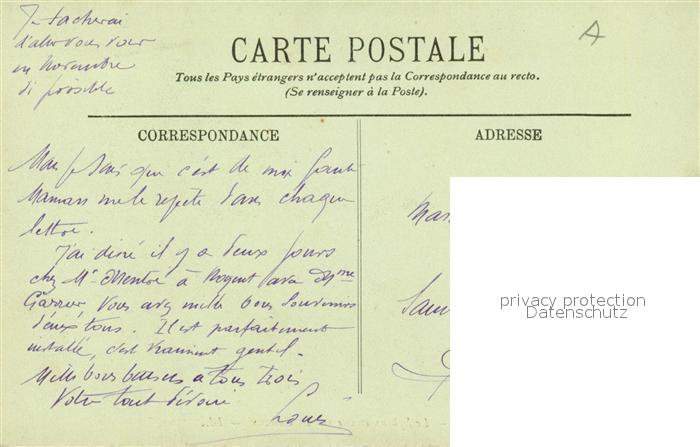 Je tacherai
d'aller vous voir
en novembre
si possible
A
CARTE POSTALE
Tous les Pays étrangers n'acceptent pas la Correspondance au recto.
(Se renseigner à la Poste).
CORRESPONDANCE
ADRESSE
Mais je sais que c'est de ma faute
Maman me le repete dans chaque
lettre.
J'ai diné il y a deux jours
chez Mr à Nogent avec Mme
Vous avez mille bons souvenirs
d'eux tous. Il est parfaitement
installé, c'est vraiment gentil.
Mille bons baisers a tous trois
Votre tout dévoué
Louis
privacy protection
Datenschutz